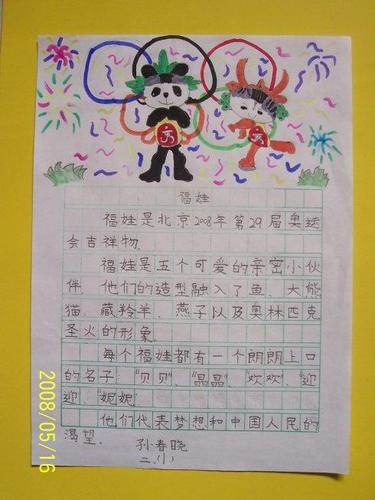 福娃
福娃是北京2008年第29届奥运
会吉祥物.
福娃是五个可爱的亲密小伙
伴. 他们的造型融入了鱼、大熊
猫、藏羚羊、燕子以及奥林匹克
圣火的形象.
每个福娃都有一个朗朗上口
的名子:"贝贝"、"晶晶"、"欢欢"、"迎
迎"、"妮妮".
他们代表梦想和中国人民的
渴望.
孙春晓
二.(1)
2008/05/16